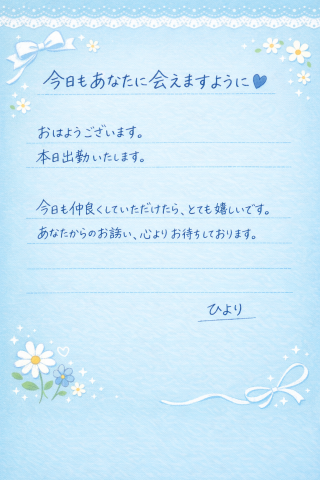 今日もあなたに会えますように💙
おはようございます。
本日出勤いたします。
今日も仲良くしていただけたら、とても嬉しいです。
あなたからのお誘い、心よりお待ちしております。
ひより